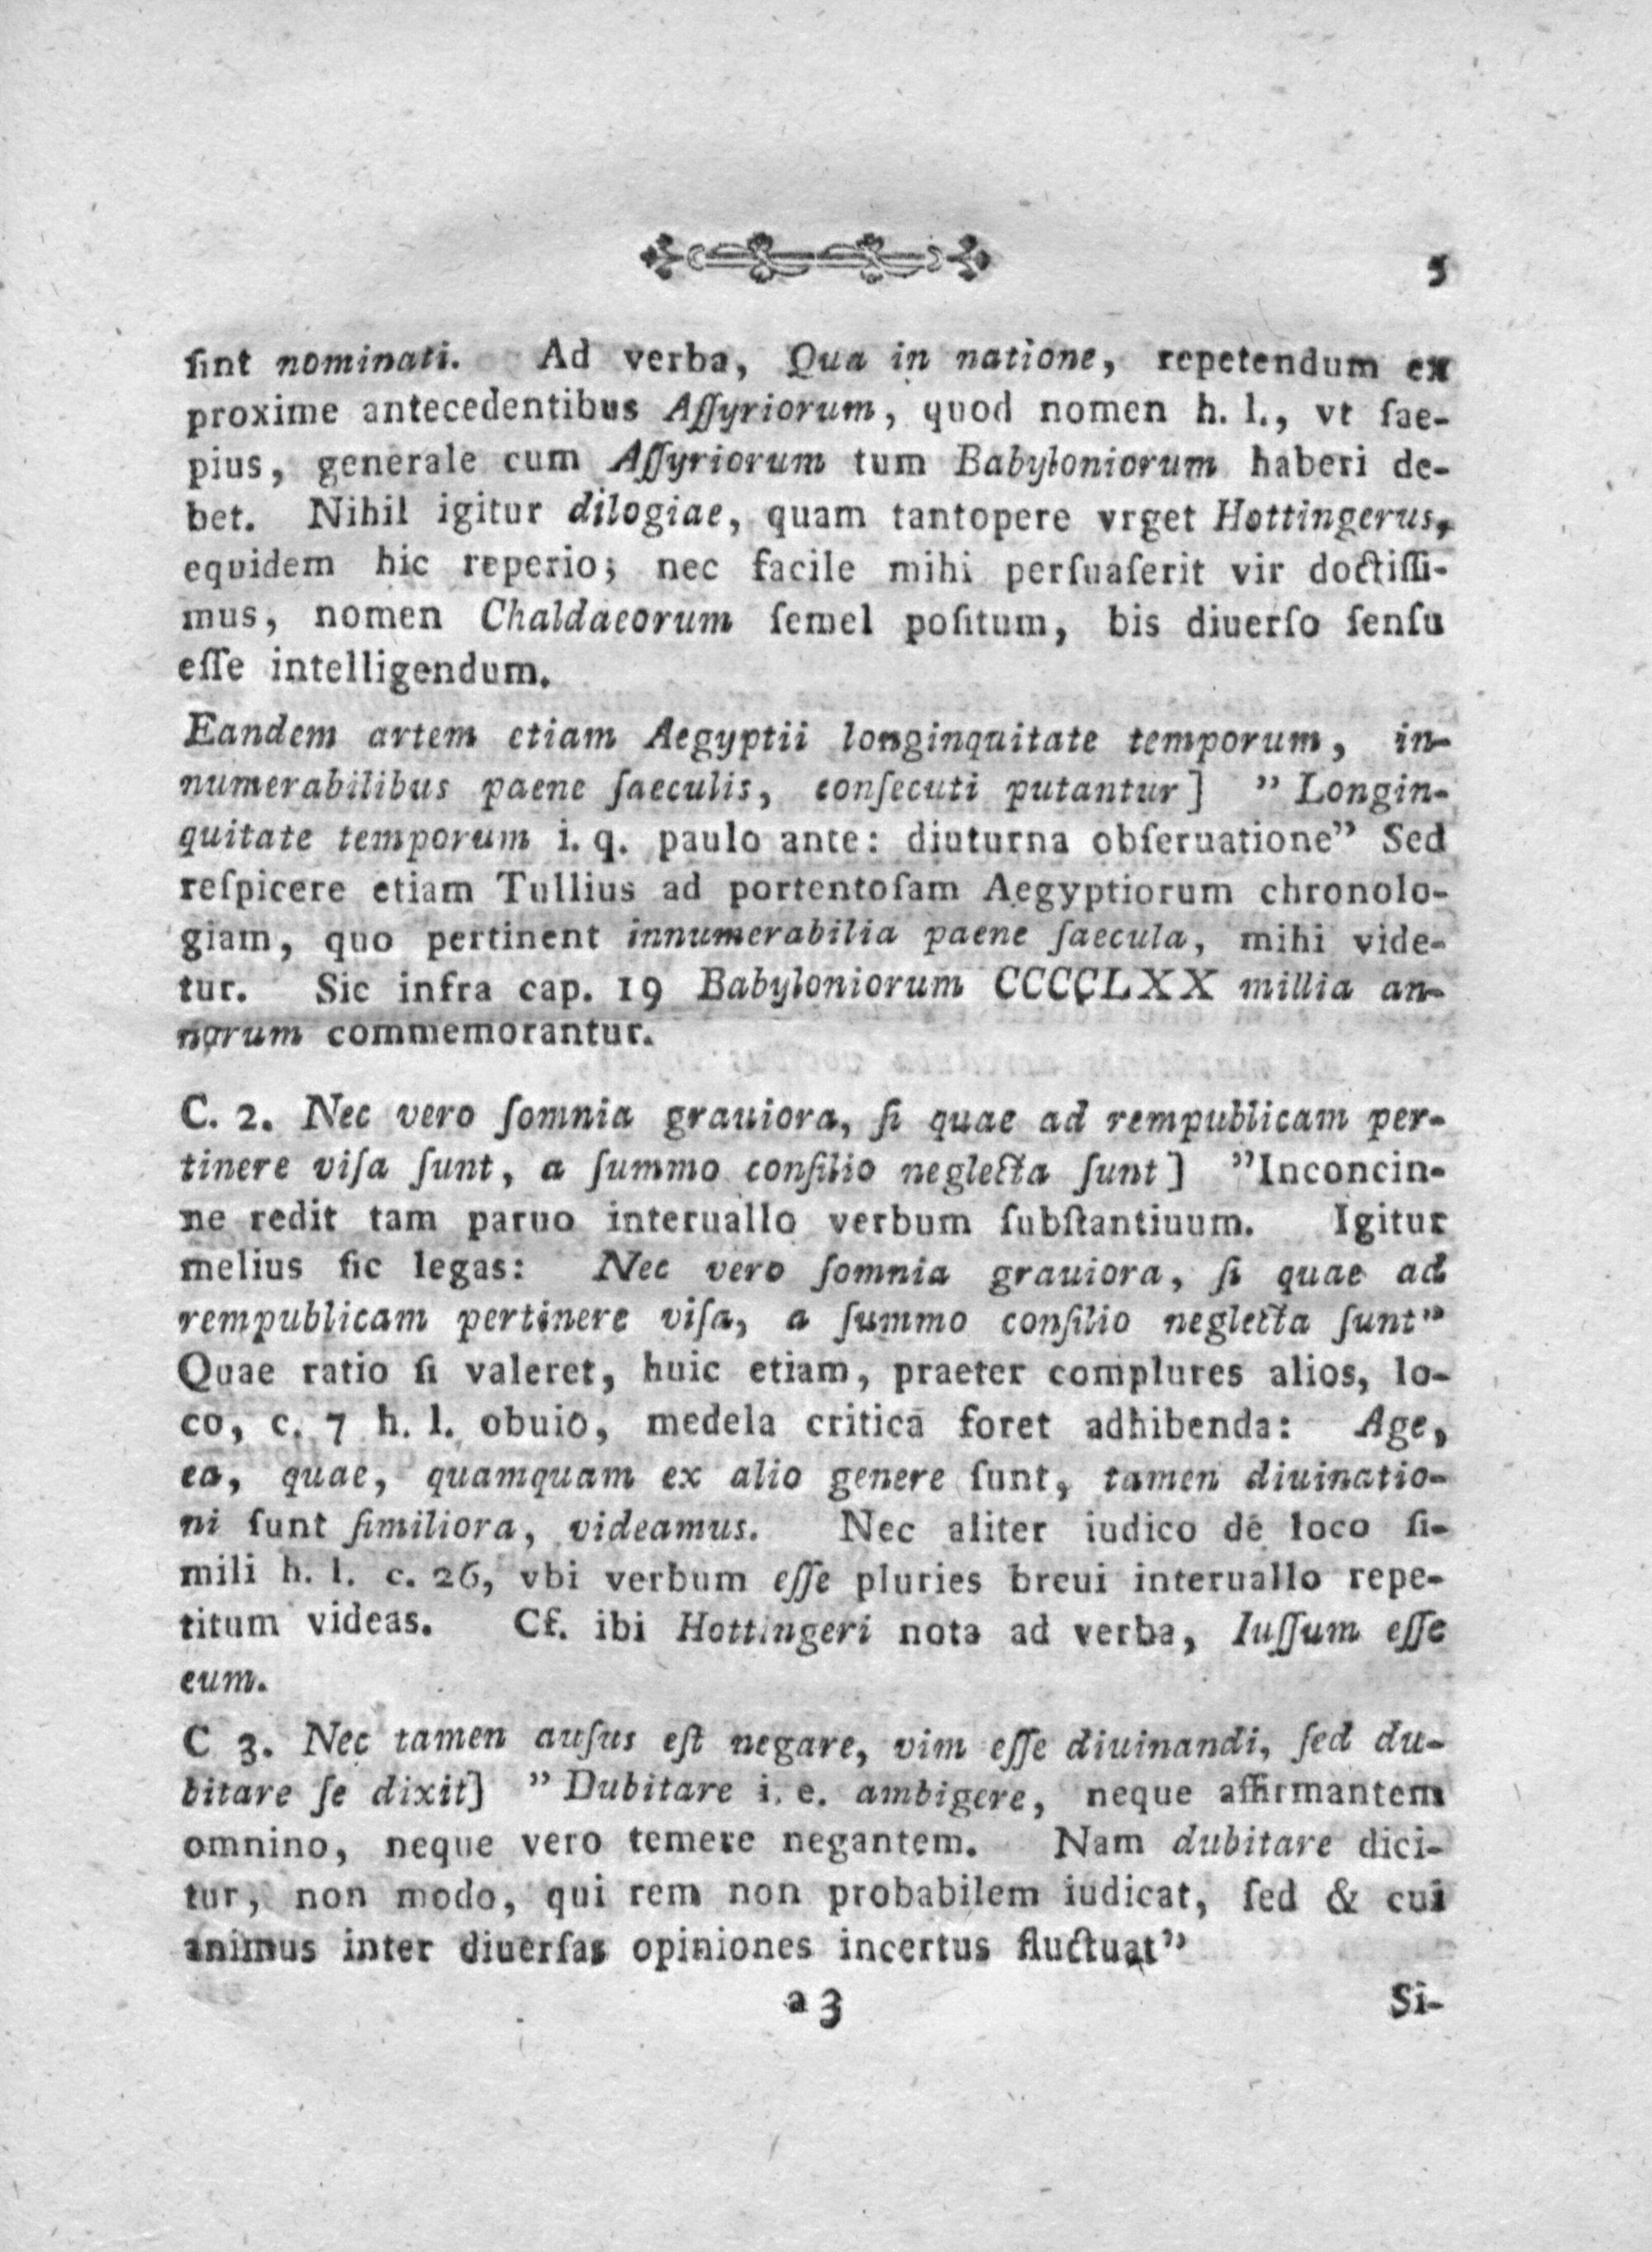 5
ſint nominati. Ad verba, Qua in natione, repetendum ex
proxime antecedentibus Aſſyriorum, quod nomen h. l., vt ſae-
pius, generale cum Aſſyriorum tum Babyloniorum haberi de-
bet. Nihil igitur dilogiae, quam tantopere vrget Hottingerus,
equidem hic reperio; nec facile mihi perſuaſerit vir doctiſſi-
mus, nomen Chaldaeorum ſemel poſitum, bis diuerſo ſenſu
eſſe intelligendum.
Eandem artem etiam Aegyptii longinquitate temporum, in-
numerabilibus paene ſaeculis, conſecuti putantur] ” Longin-
quitate temporum i. q. paulo ante: diuturna obſeruatione” Sed
reſpicere etiam Tullius ad portentoſam Aegyptiorum chronolo-
giam, quo pertinent innumerabilia paene ſaecula, mihi vide-
tur. Sic infra cap. 19 Babyloniorum CCCCLXX millia an-
norum commemorantur.
C. 2. Nec vero ſomnia grauiora, ſi quae ad rempublicam per-
tinere viſa ſunt, a ſummo conſilio neglecta ſunt] ”Inconcin-
ne redit tam paruo interuallo verbum ſubſtantiuum. Igitur
melius ſic legas: Nec vero ſomnia grauiora, ſi quae ad
rempublicam pertinere viſa, a ſummo conſilio neglecta ſunt”
Quae ratio ſi valeret, huic etiam, praeter complures alios, lo-
co, c. 7 h. l. obuio, medela critica foret adhibenda: Age,
ea, quae, quamquam ex alio genere ſunt, tamen diuinatio-
ni ſunt ſimiliora, videamus. Nec aliter iudico de loco ſi-
mili h. l. c. 26, vbi verbum eſſe pluries breui interuallo repe-
titum videas. Cf. ibi Hottingeri nota ad verba, Iuſſum eſſe
eum.
C 3. Nec tamen auſus eſt negare, vim eſſe diuinandi, ſed du-
bitare ſe dixit] ” Dubitare i. e. ambigere, neque affirmantem
omnino, neque vero temere negantem. Nam dubitare dici-
tur, non modo, qui rem non probabilem iudicat, ſed & cui
animus inter diuerſas opiniones incertus fluctuat”
a 3 Si-